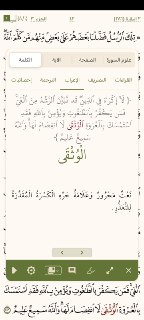 ﴿ تِلْكَ ٱلرُّسُلُ فَضَّلْنَا بَعْضَهُمْ عَلَىٰ بَعْضٍ مِّنْهُم مَّن كَلَّمَ ٱللَّهُ
علوم السورة الصفحة الآية الكلمة
القراءات التصريف الإعراب الترجمة إحصاءات
﴿ لَآ إِكْرَاهَ فِي ٱلدِّينِ قَد تَّبَيَّنَ ٱلرُّشْدُ مِنَ ٱلْغَيِّ
فَمَن يَكْفُرْ بِٱلطَّٰغُوتِ وَيُؤْمِنۢ بِٱللَّهِ فَقَدِ
ٱسْتَمْسَكَ بِٱلْعُرْوَةِ ٱلْوُثْقَىٰ لَا ٱنفِصَامَ لَهَا وَٱللَّهُ
سَمِيعٌ عَلِيمٌ ﴾
ٱلْوُثْقَىٰ
نَعْتٌ مَجْرُورٌ وَعَلَامَةُ جَرِّهِ الْكَسْرَةُ الْمُقَدَّرَةُ
لِلتَّعَذُّرِ.
ٱلْغَيِّ فَمَن يَكْفُرْ بِٱلطَّٰغُوتِ وَيُؤْمِنۢ بِٱللَّهِ فَقَدِ ٱسْتَمْسَكَ
بِٱلْعُرْوَةِ ٱلْوُثْقَىٰ لَا ٱنفِصَامَ لَهَا وَٱللَّهُ سَمِيعٌ عَلِيمٌ